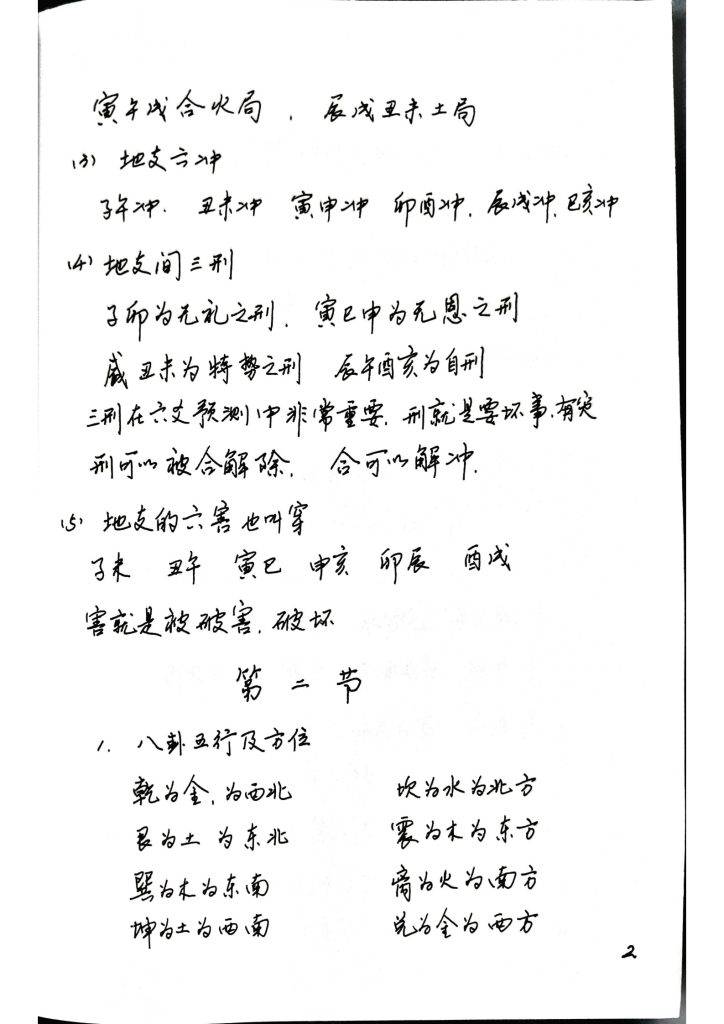 寅午戌合火局 . 辰戌丑未土局
(3) 地支六冲
子午冲. 丑未冲 寅申冲 卯酉冲. 辰戌冲. 巳亥冲
(4) 地支间三刑
子卯为无礼之刑. 寅巳申为无恩之刑
戌丑未为特势之刑 辰午酉亥为自刑
三刑在六爻预测中非常重要. 刑就是要坏事. 有灾
刑可以被合解除. 合可以解冲.
(5) 地支的六害也叫穿
子未 丑午 寅巳 申亥 卯辰 酉戌
害就是被破害. 破坏
第二节
1. 八卦五行及方位
乾为金. 为西北 坎为水为北方
艮为土 为东北 震为木为东方
巽为木为东南 离为火为南方
坤为土为西南 兑为金为西方
2